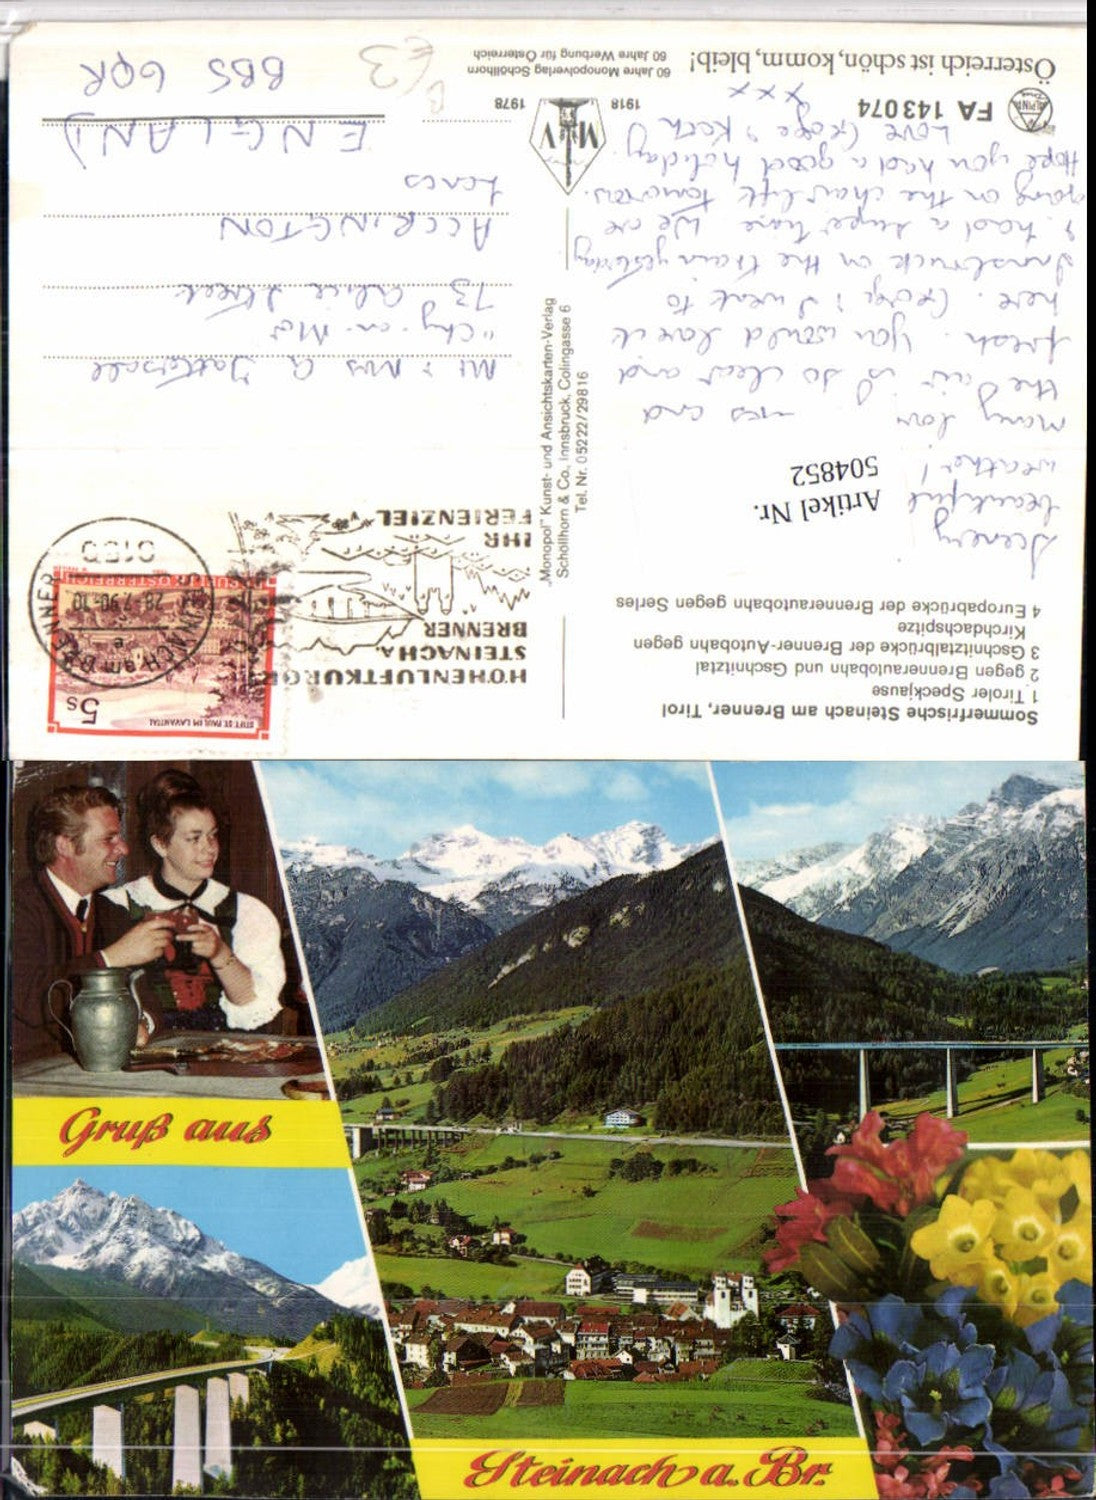 Sommerfrische Steinach am Brenner, Tirol
1 Tiroler Speckjause
2 gegen Brennerautobahn und Gschnitztal
3 Gschnitztalbrücke der Brenner-Autobahn gegen
Kirchdachspitze
4 Europabrücke der Brennerautobahn gegen Serles
Scenery
beautiful
weather!
Artikel Nr.
504852
many low and
the air is so clear and
fresh. You would love it
here. George & I went to
Innsbruck on the train yesterday
& had a super time We are
going on the chairlift tomorrow.
Hope you had a good holiday.
Love George & Kath
xxx
FA 143074
ALPINA
Österreich ist schön, komm, bleib!
„Monopol" Kunst- und Ansichtskarten-Verlag
Schöllhorn & Co., Innsbruck, Colingasse 6
Tel. Nr. 05222/29816
1918 MV 1978
60 Jahre Monopolverlag Schöllhorn
60 Jahre Werbung für Österreich
STIFT ST. PAUL IM LAVANTTAL
5 S
REPUBLIK ÖSTERREICH
STEINACH am BRENNER
28.7.90-10
6150
HÖHENLUFTKURORT
STEINACH A.
BRENNER
IHR
FERIENZIEL
Mr & Mrs G Tattersall
"Chy-an-Mor"
73 Alice Street
ACCRINGTON
Lancs
ENGLAND
BB5 6QR
€3
Gruß aus
Steinach a. Br.